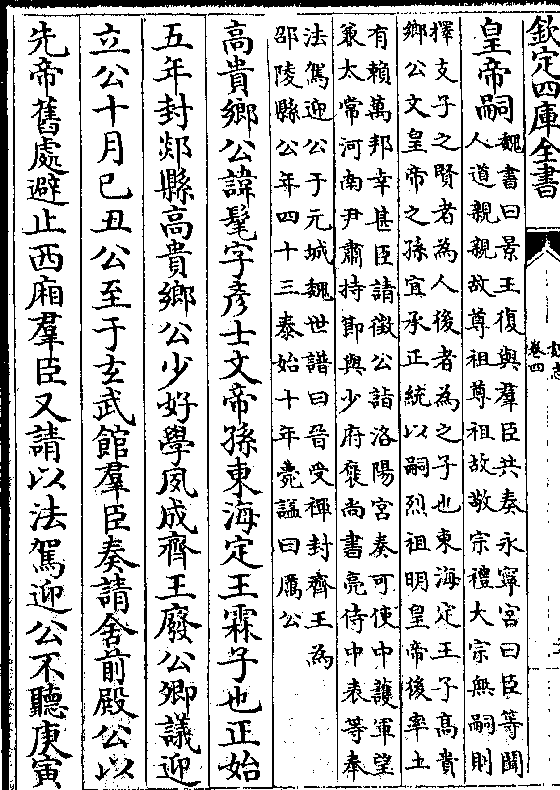 欽定四庫全書
卷四
皇帝嗣
魏書曰景王復與羣臣共奏永寧宮曰臣等聞
人道親親故尊祖尊祖故敬宗禮大宗無嗣則
擇支子之賢者為人後者為之子也東海定王子高貴
鄉公文皇帝之孫宜承正統以嗣烈祖明皇帝後率土
有賴萬邦幸甚臣請徵公詣洛陽宮奏可使中護軍望
兼太常河南尹肅持節與少府襃尚書亮侍中表等奉
法駕迎公于元城魏世譜曰晉受禪封齊王為
邵陵縣公年四十三泰始十年薨諡曰厲公
高貴鄉公諱髦字彥士文帝孫東海定王霖子也正始
五年封郯縣高貴鄉公少好學夙成齊王廢公卿議迎
立公十月己丑公至于玄武館羣臣奏請舍前殿公以
先帝舊處避止西廂羣臣又請以法駕迎公不聽庚寅